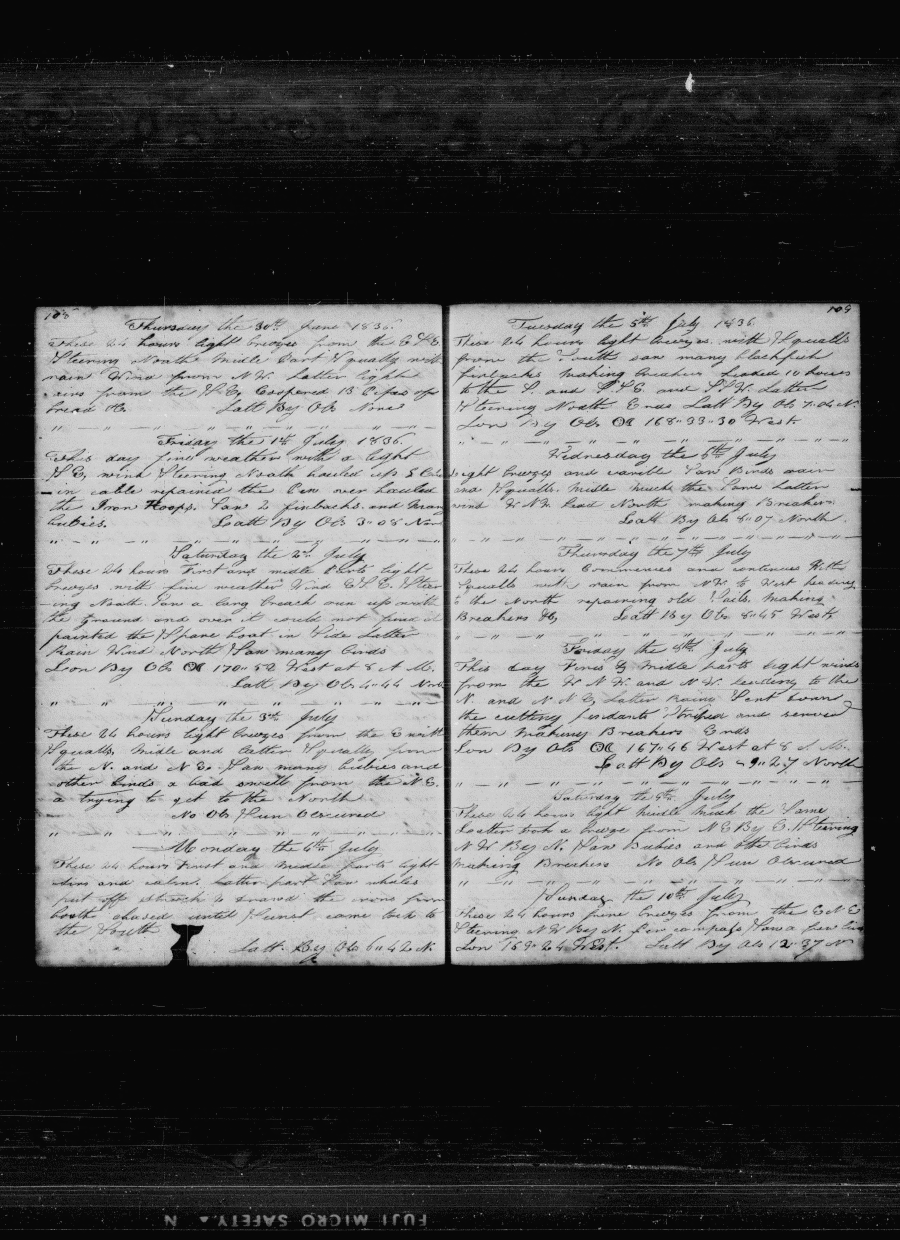 108
Thursday the 30th June 1836.
These 24 hours light breezes from the E S E.
Steering North Midle Part Squally with
rain Wind from N W. Latter light
airs from the S E, Coopered 13 of
bread &c. Latt By Obs None
Friday the 1st July 1836.
This day fine weather with a light
S E, wind Steering North hauled up
in cable repaired the Pen over hauled
the Iron Hoops. Saw 2 finbacks and many
bubies. Latt By Obs 3"08 Nor
Saturday the 2d July
These 24 hours First and midle Parts light
breezes with fine weather Wind E S E. Steer
-ing North. Saw a long breach run up with
the ground and over it could not find it
painted the Spare boat in Side Latter
Rain Wind North Saw many birds
Lon By Obs 170"52 West at 8 A M.
Latt By Obs 4"44 North
Sunday the 3d July
These 24 hours light breezes from the E with
Squalls. Midle and Latter Squally from
the N. and N E. Saw many bubies and
other birds a bad swell from the N E.
a trying to get to the North
No Obs Sun Obscured
Monday the 4th July
These 24 hours First and Midle parts light
airs and calm. Latter part Saw whales
put off struck & drawed the irons from
both chased until Sunset came back to
the South
Latt By Obs 6"42 N.
109
Tuesday the 5th July 1836
These 24 hours light breezes with Squalls
from the South saw many blackfish
finbacks Making Breakers headed 10 hours
to the S. and S S E and S S W. Latter
Steering North. Ends Latt By Obs 7"06 N.
Lon By Obs 168"33"30 West
Wednesday the 6th July
Light breezes and varible Saw Birds rain
and Squalls. Midle much the Same Latter
wind W N W. head North making Breakers
Latt By Obs 8"07 North
Thursday the 7th July
These 24 hours Commences and continues With
Squalls with rain from N W to West heading
to the North repairing old Sails. Making
Breakers &c, Latt By Obs 8"45 West
Friday the 8th July
This day First & Midle parts light winds
from the W N W. and N W. heading to the
N. and N N E, Latter Rains Sent down
the cutting pendants Striped and served
them Making Breakers Ends
Lon By Obs 167"46 West at 8 A M.
Latt By Obs 9"27 North
Saturday the 9th July
These 24 hours light Midle Much the Same
Latter took a breeze from N E By E. Steering
N W By N. Saw Bubies and other birds
Making Breakers No Obs Sun Obscured
Sunday the 10th July
These 24 hours fine breezes from the E N E
Steering N W By N. Per compass Saw a few
Lon 169"24 West. Latt By Obs 12"37 N
FUJI MICRO SAFETY. N